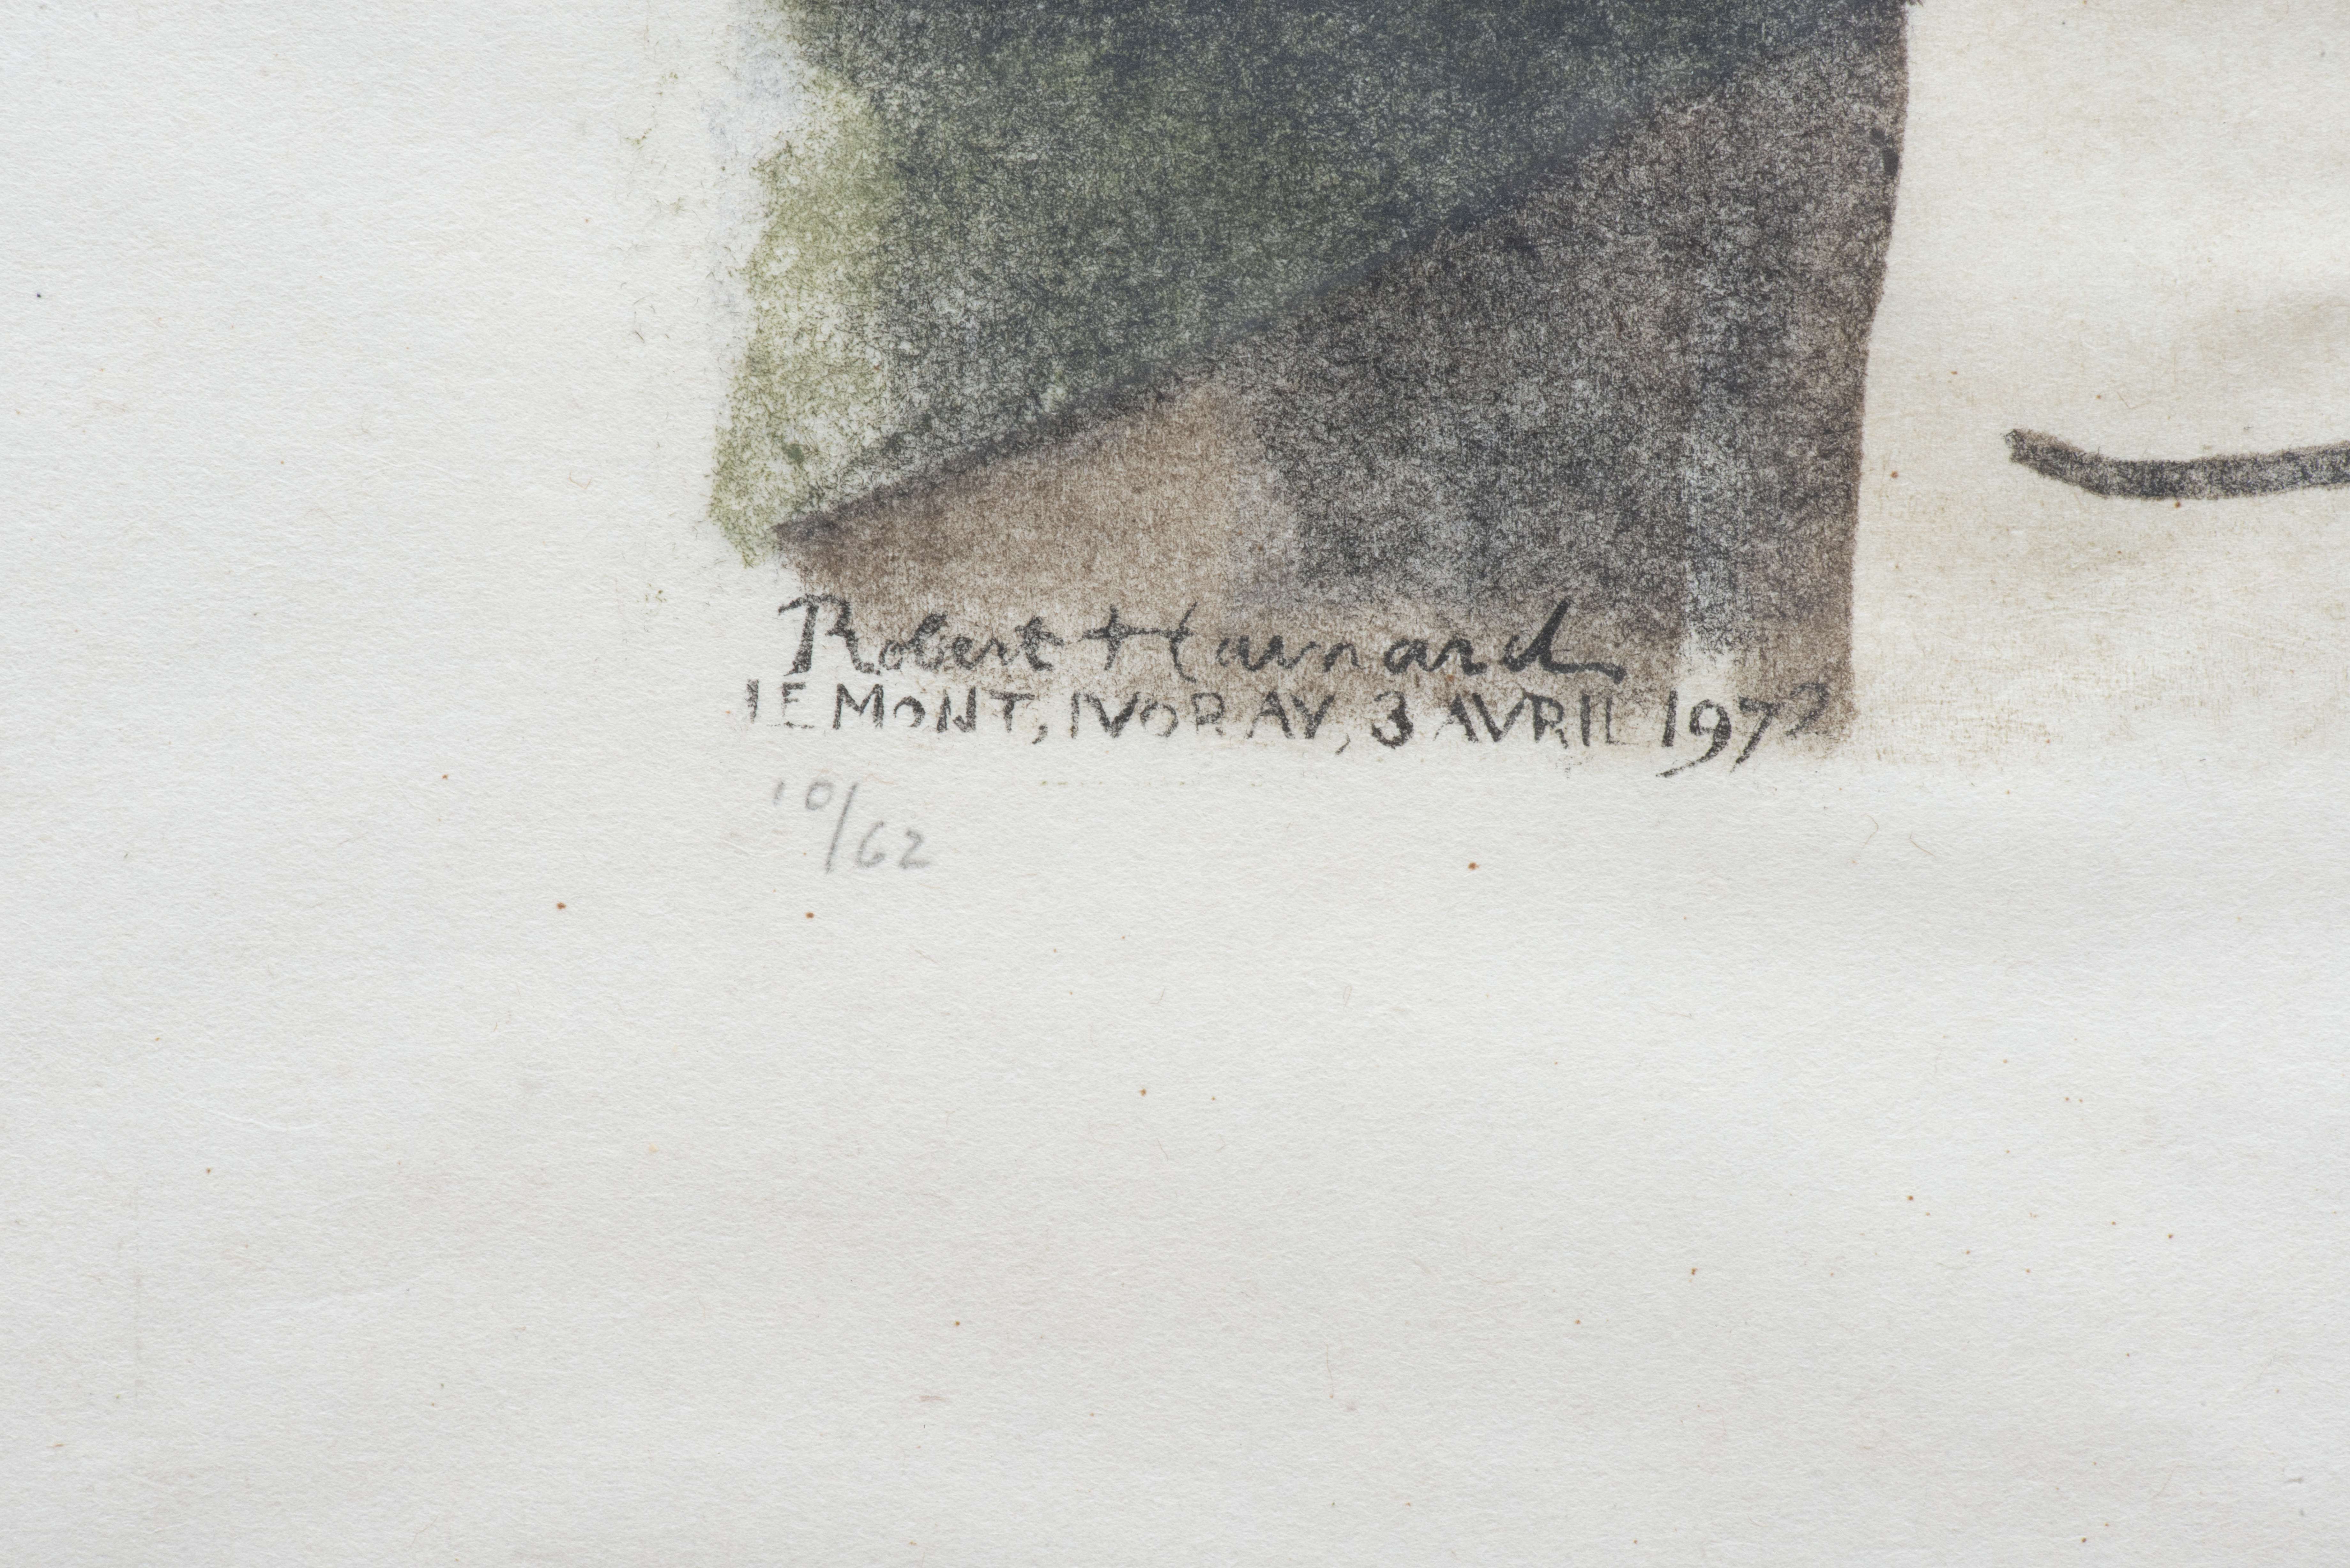 Robert Hainard
LE MONT, IVORAY, 3 AVRIL 1972
10/62